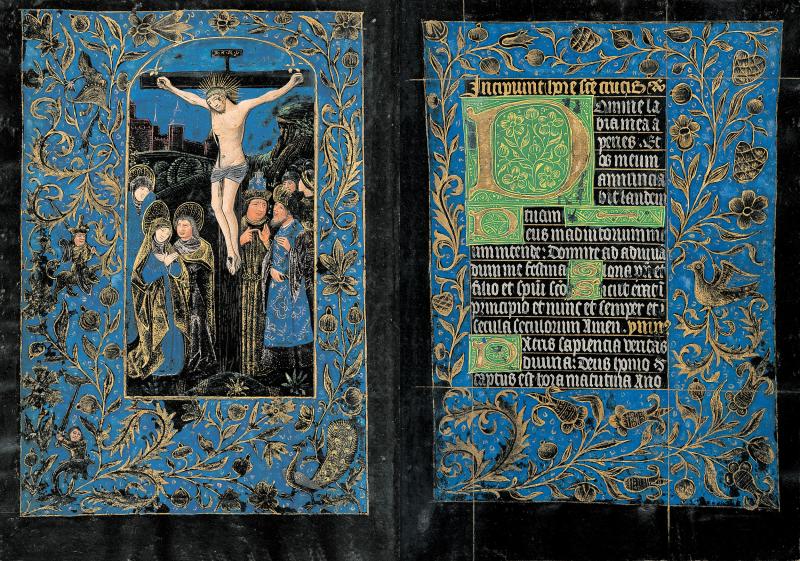 Incipiunt hore sce crucis
Domine la
bia mea a
peries. Et
os meum
annuncia
bit laudem
tuam
Deus in adiutorium m
eum intende: Domine ad adiuua
dum me festina Gloria pri et
filio et spui sco Sicut erat i
principio et nunc et semper et i
secula seculorum Amen. ymn
Patris sapiencia veritas
diuina: Deus homo
captus est hora matutina A no